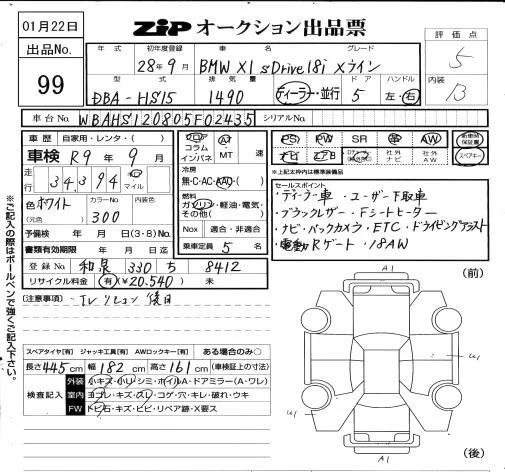 01月22日
ZIP オークション出品票
出品No.
99
年式 初年度登録 車名 グレード
28年9月 BMW X1 sDrive18i Xライン
型式 排気量 ドア ハンドル
DBA-HS15 1490 ディーラー・並行 5 左・右
評価点
5
内装
B
車台No. WBAHS120805F02435 シリアルNo.
車歴 自家用・レンタ・( )
車検 R9年 9月
走行 34,394 km マイル
色 ホワイト カラーNo. 300 内装色
(元色)
予備検 年 月 日(3・8)No.
書類有効期限 年 月 日迄
登録No. 和泉 330 ち 8412
リサイクル料金 有(¥20.540) 未
フロア AT
コラム
インパネ MT 速
冷房
無・C・AC・AAC
燃料
ガソリン・軽油・電気・
その他( )
Nox 適合・非適合
乗車定員 5 名
PS PW SR 革 AW
ナビ エアB 社外ナビ 社外AW
新車時保証書
スペアキー
※上記太枠内は標準装備品
セールスポイント
・ディーラー車 ・ユーザー下取車
・ブラックレザー・Fシートヒーター
・ナビ・バックカメラ・ETC・ドライビングアシスト
・電動Rゲート・18AW
(注意事項) TVリモコン 後日
※ご記入の際はボールペンで強くご記入下さい。
スペアタイヤ[有] ジャッキ工具[有] AWロックキー[有] ある場合のみ○
長さ 445cm 幅 182cm 高さ 161cm (車検証上の寸法)
検査記入
外装 小キズ・小・シミ・ホイルA・ドアミラー(A・ワレ)
室内 ヨゴレ・キズ・スレ・コゲ・穴・キレ・破れ・ウキ
FW トビ石・キズ・ヒビ・リペア跡・X要ス
A1
(前)
W1
W1
A1
(後)